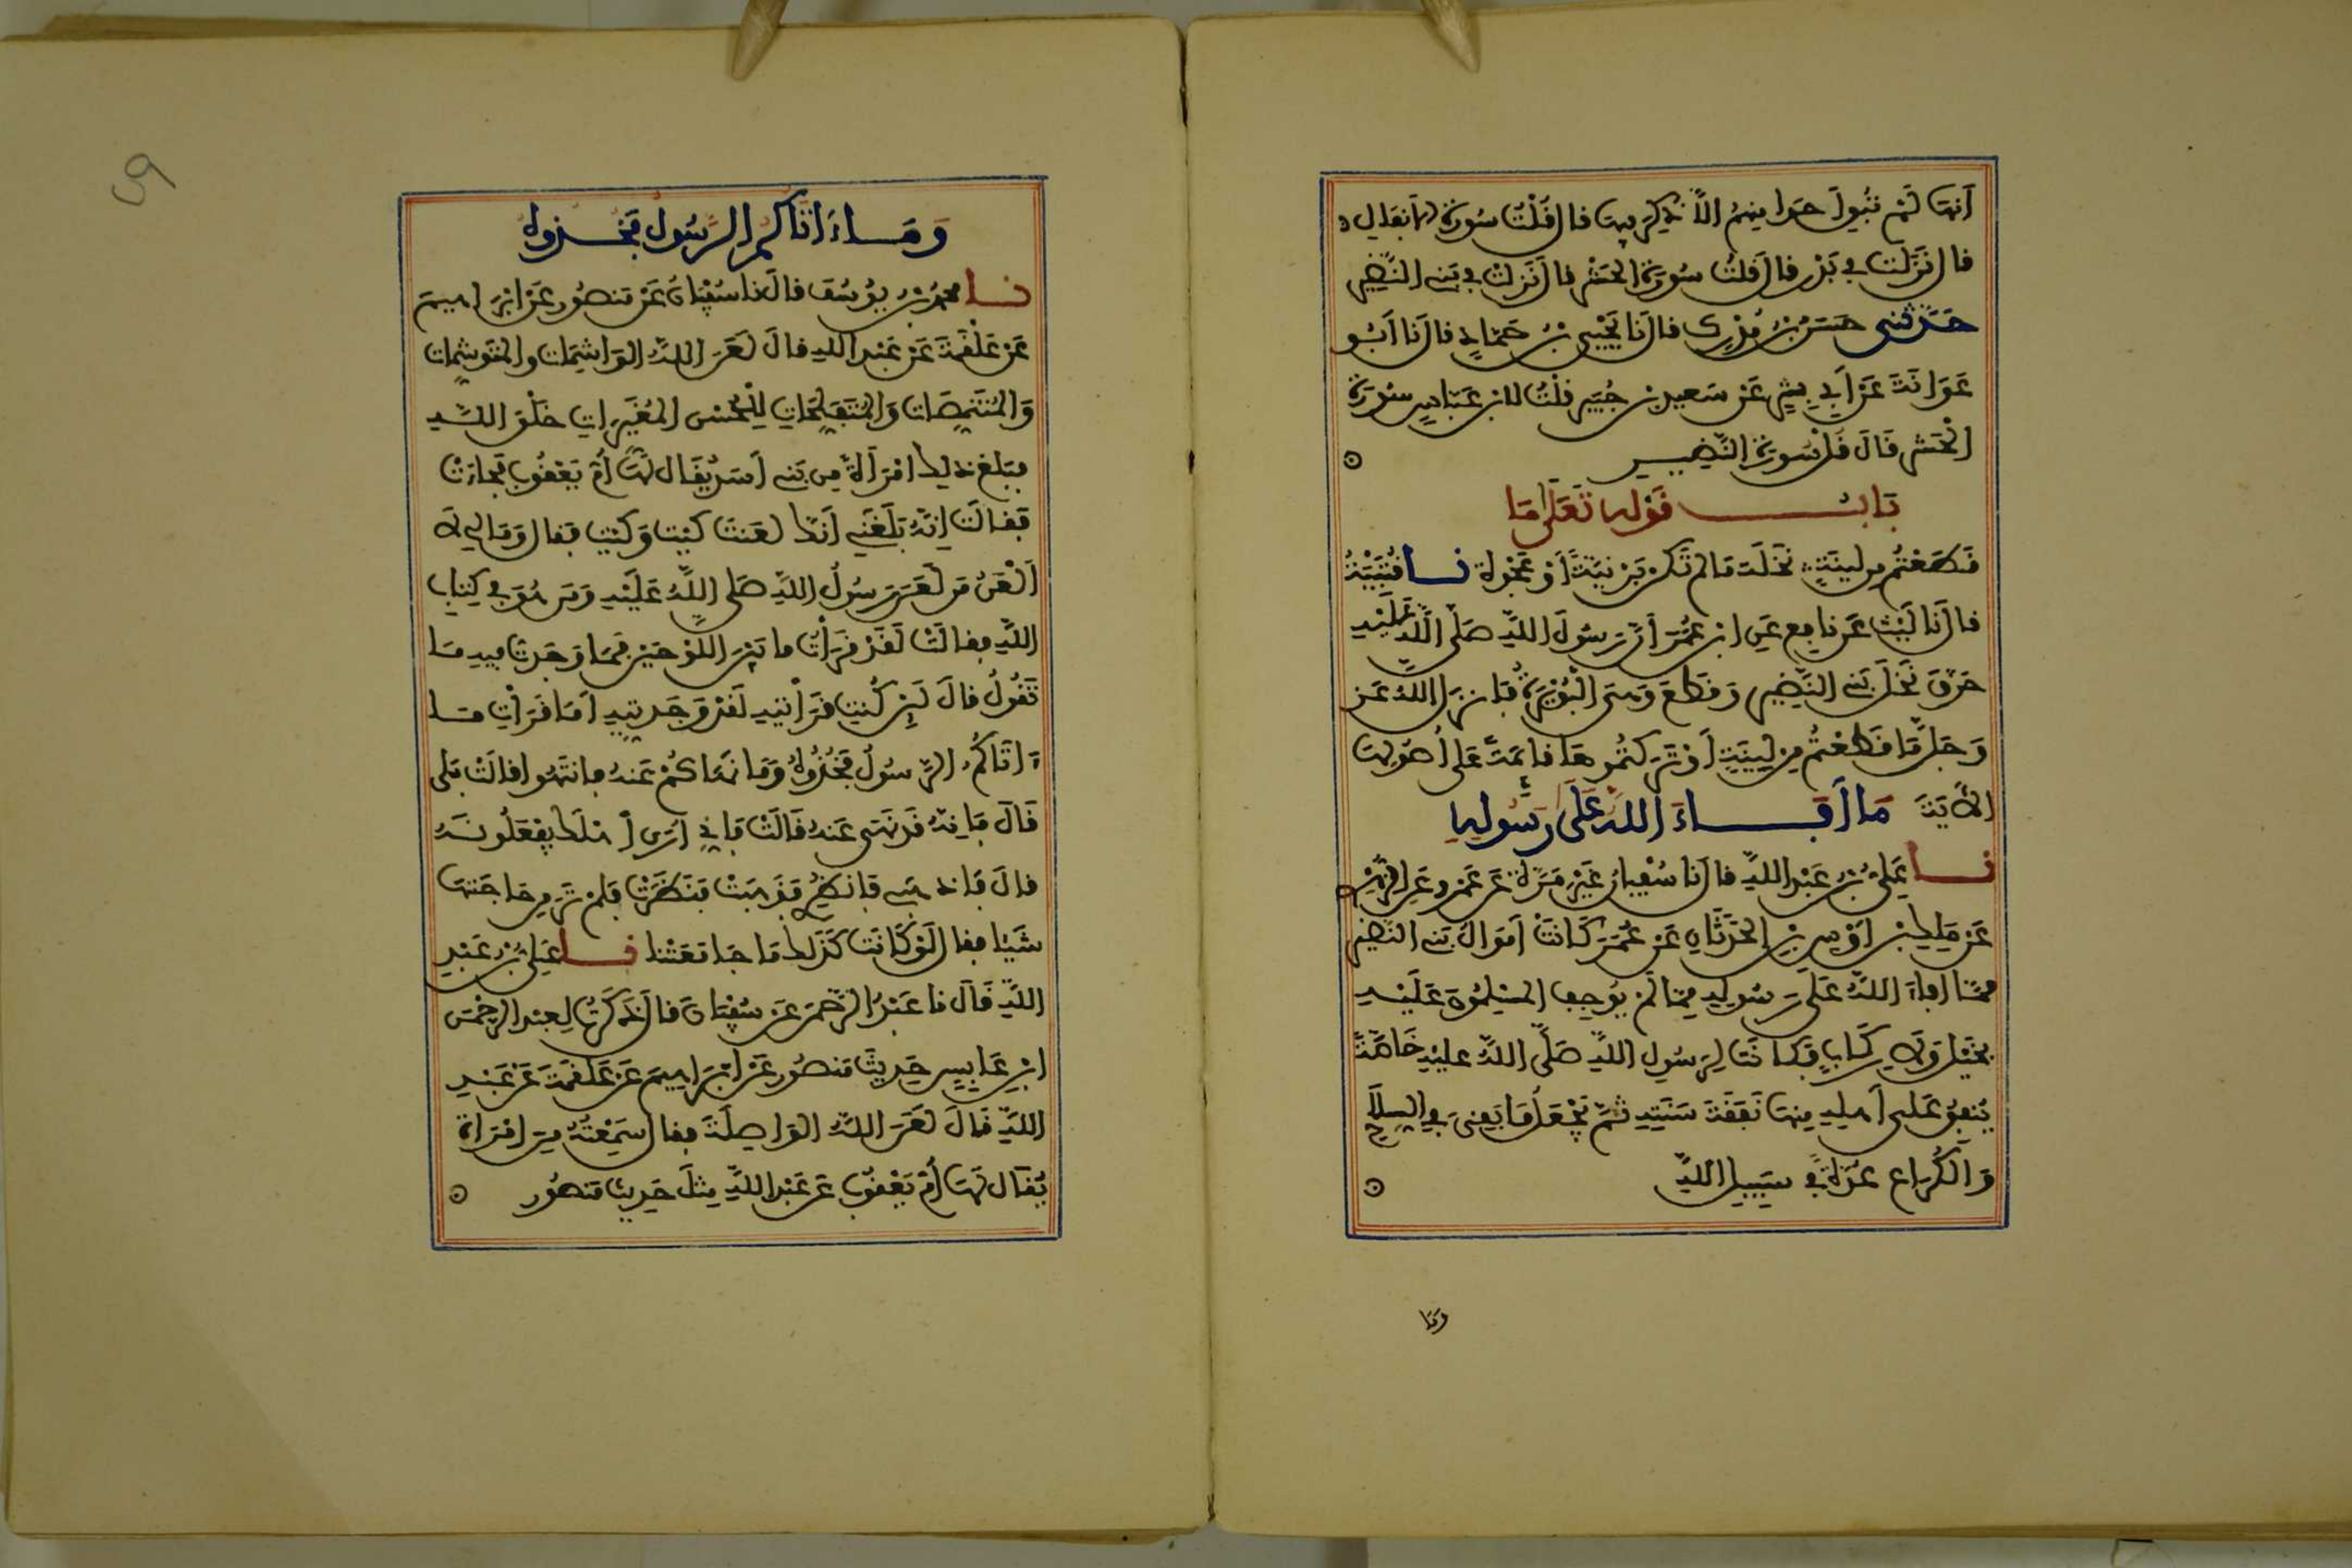 أنها لم تبق أحدا منهم إلا ذكر فيها قال قلت سورة الأنفال
قال نزلت في بدر قال قلت سورة الحشر قال نزلت في بني النضير
حدثني حسن بن مدرك قال نا يحيى بن حماد قال نا أبو
عوانة عن أبي بشر عن سعيد بن جبير قلت لابن عباس سورة
الحشر قال قل سورة النضير
باب قوله تعلى ما
قطعتم من لينة نخلة ما لم تكن برنية أو عجوة نا قتيبة
قال نا ليث عن نافع عن ابن عمر أن رسول الله صلى الله عليه
حرق نخل بني النضير وقطع وهي البويرة فأنزل الله عز
وجل ما قطعتم من لينة أو تركتموها قائمة على أصولها
الآية ما أفاء الله على رسوله
نا علي بن عبد الله قال نا سفيان غير مرة عن عمرو عن الزهري
عن ملك بن أوس بن الحدثان عن عمر كانت أموال بني النضير
مما أفاء الله على رسوله مما لم يوجف المسلمون عليه
بخيل ولا ركاب فكانت لرسول الله صلى الله عليه خاصة
ينفق على أهله منها نفقة سنته ثم يجعل ما بقي في السلاح
والكراع عدة في سبيل الله
وما
وما ءاتاكم الرسول فخذوه
نا محمد بن يوسف قال نا سفيان عن منصور عن إبراهيم
عن علقمة عن عبد الله قال لعن الله الواشمات والموتشمات
والمتنمصات والمتفلجات للحسن المغيرات خلق الله
فبلغ ذلك امرأة من بني أسد يقال لها أم يعقوب فجاءت
فقالت إنه بلغني أنك لعنت كيت وكيت فقال وما لي لا
ألعن من لعن رسول الله صلى الله عليه ومن هو في كتاب
الله فقالت لقد قرأت ما بين اللوحين فما وجدت فيه ما
تقول قال لئن كنت قرأتيه لقد وجدتيه أما قرأت ما
ءاتاكم الرسول فخذوه وما نهاكم عنه فانتهوا قالت بلى
قال فإنه قد نهى عنه قالت فإني أرى أهلك يفعلونه
قال فاذهبي فانظري فذهبت فنظرت فلم تر من حاجتها
شيئا فقال لو كانت كذلك ما جامعتنا نا علي بن عبد
الله قال نا عبد الرحمن عن سفيان قال ذكرت لعبد الرحمن
ابن عابس حديث منصور عن إبراهيم عن علقمة عن عبد
الله قال لعن الله الواصلة فقال سمعته من امرأة
يقال لها أم يعقوب عن عبد الله مثل حديث منصور